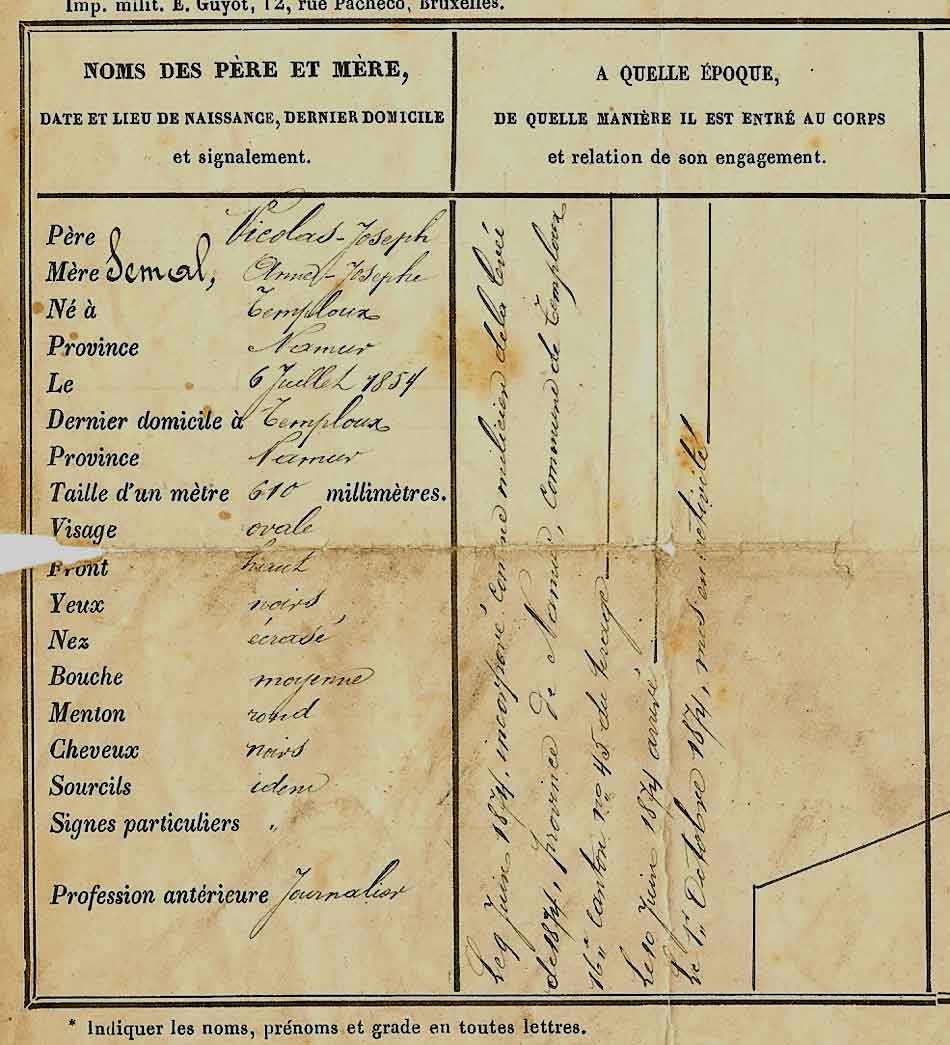 Imp. milit. E. Guyot, 12, rue Pachéco, Bruxelles.
NOMS DES PÈRE ET MÈRE,
DATE ET LIEU DE NAISSANCE, DERNIER DOMICILE
et signalement.
Père Nicolas-Joseph
Mère Semal, Anne-Josephe
Né à Temploux
Province Namur
Le 6 Juillet 1854
Dernier domicile à Temploux
Province Namur
Taille d'un mètre 610 millimètres.
Visage ovale
Front haut
Yeux noirs
Nez écrasé
Bouche moyenne
Menton rond
Cheveux noirs
Sourcils idem
Signes particuliers "
Profession antérieure Journalier
A QUELLE ÉPOQUE,
DE QUELLE MANIÈRE IL EST ENTRÉ AU CORPS
et relation de son engagement.
Le 9 Juin 1874, incorporé comme milicien de la levée
de 1874, province de Namur, commune de Temploux
16e canton no 45 de tirage
Le 10 Juin 1874 arrivé
Le 1er Octobre 1874, mis en activité
* Indiquer les noms, prénoms et grade en toutes lettres.